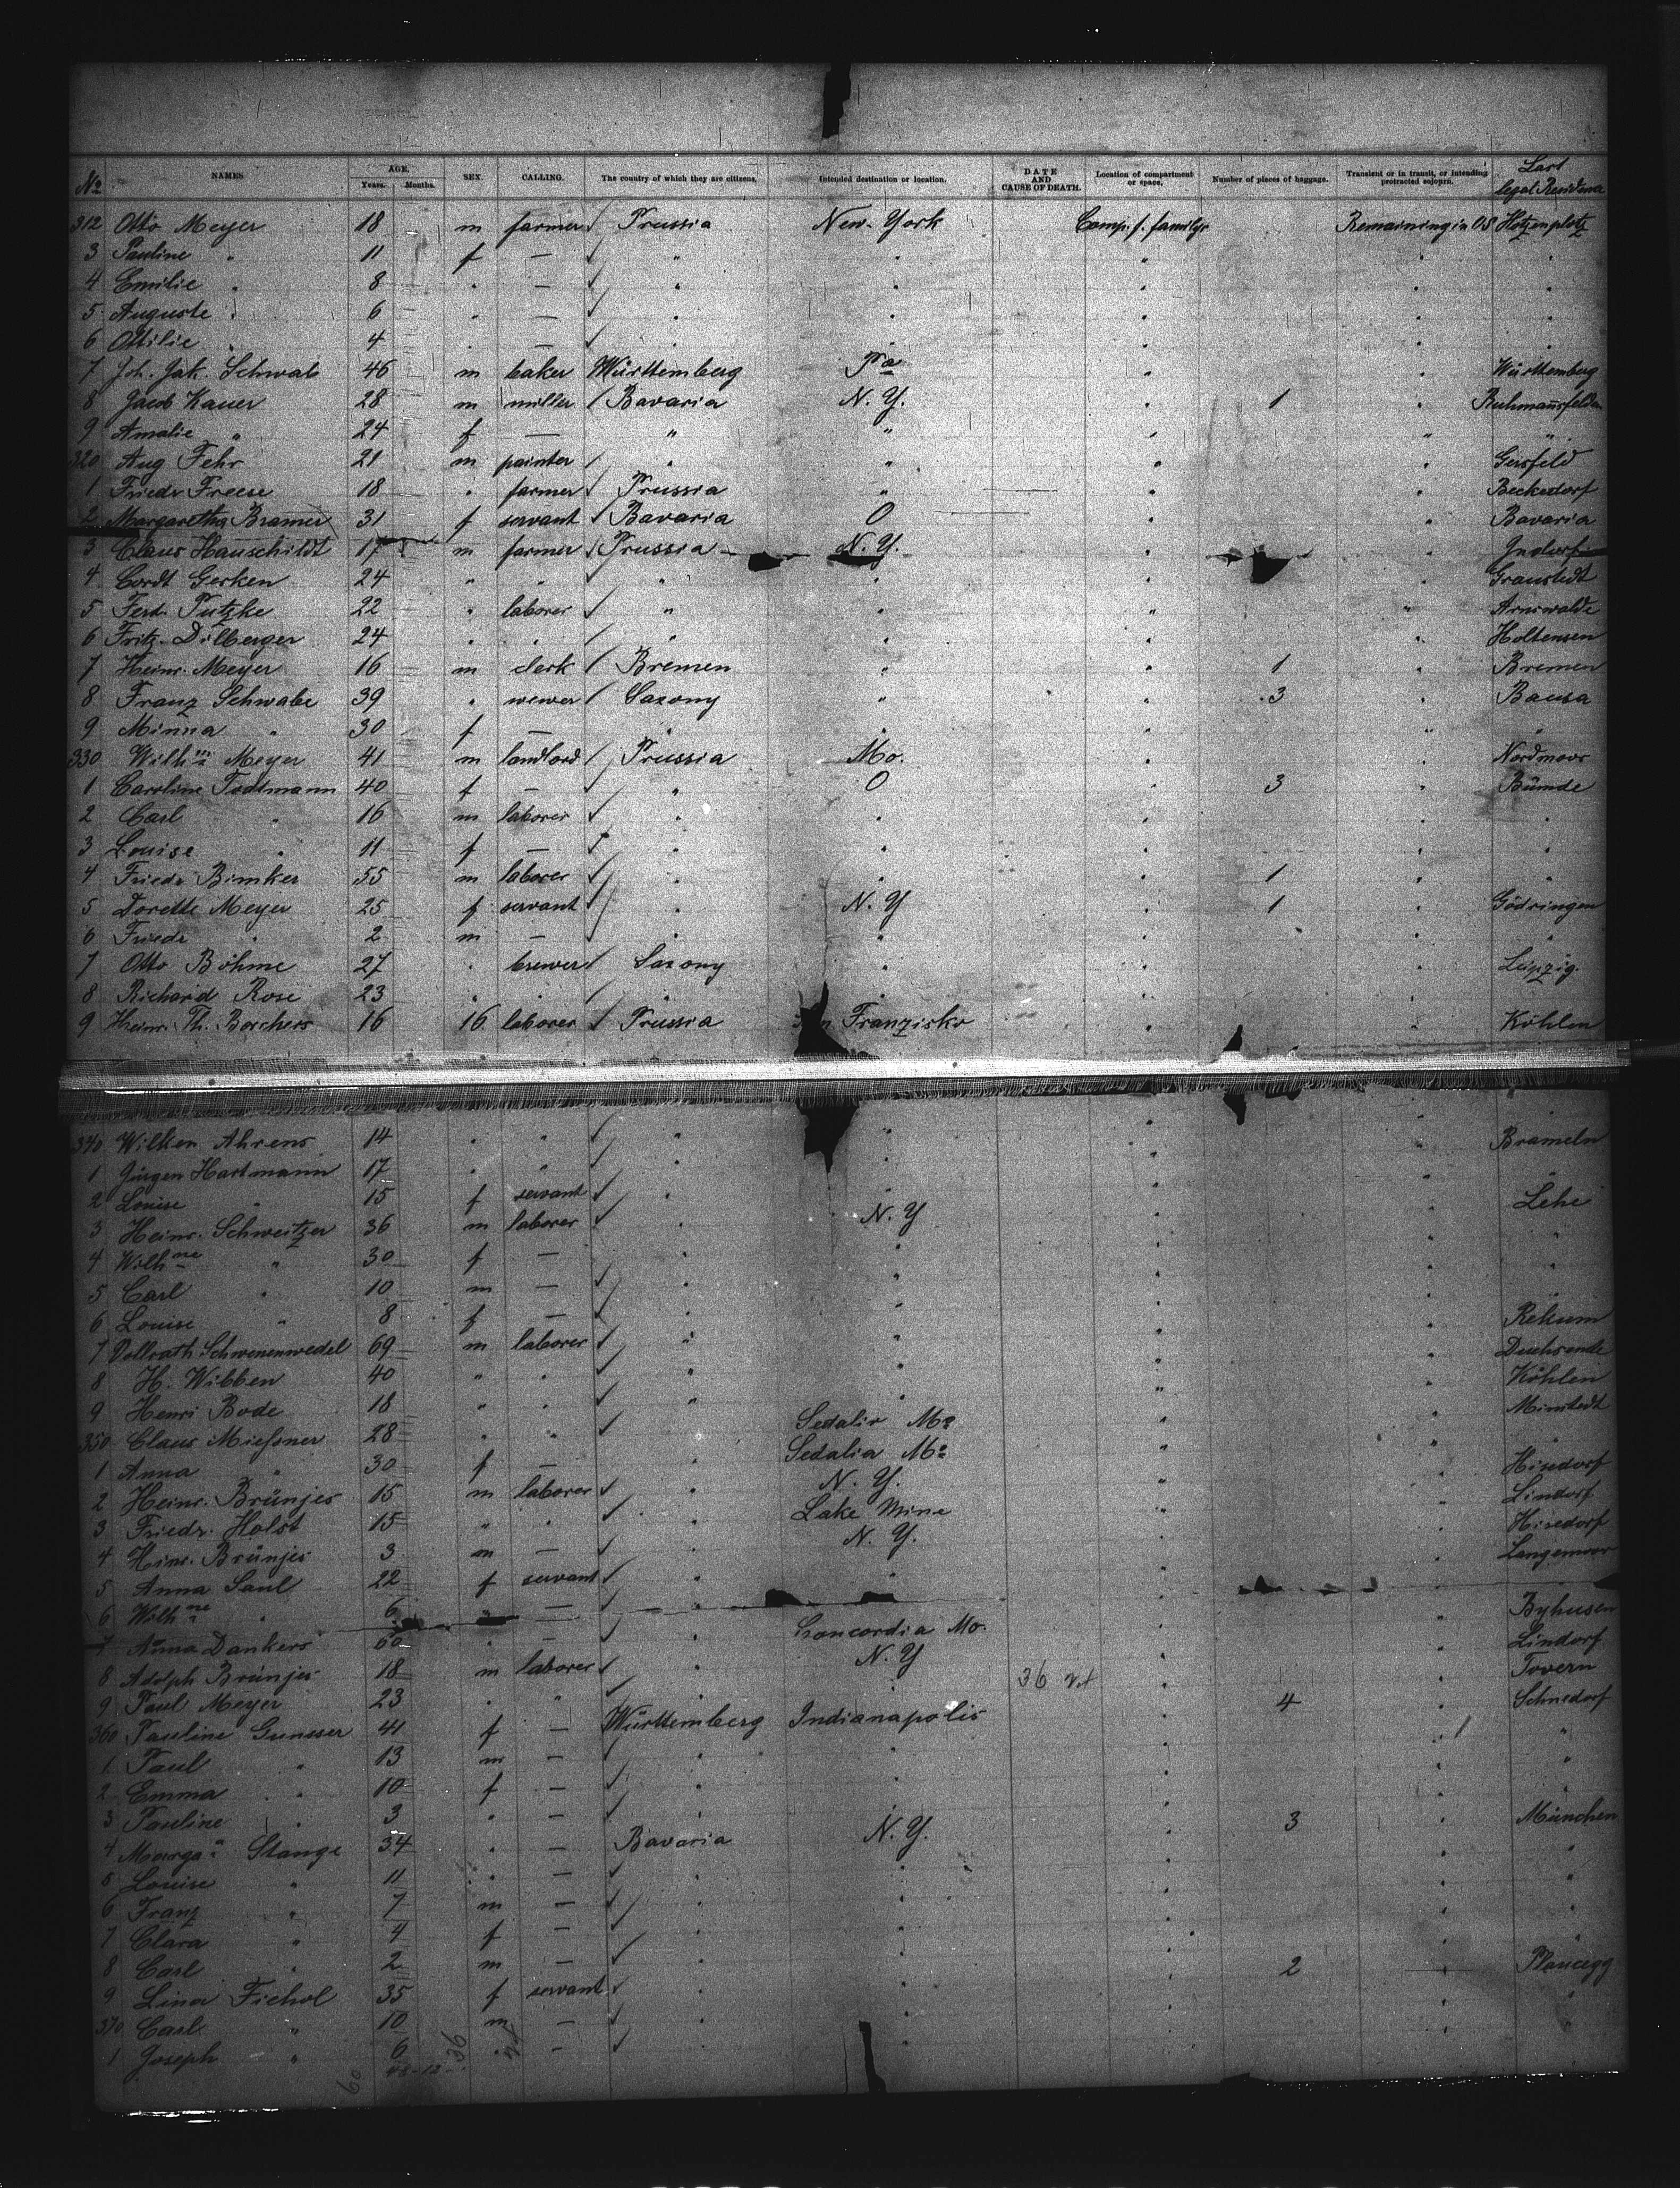 No NAMES AGE. Years. Months. SEX. CALLING. The country of which they are citizens. Intended destination or location. DATE AND CAUSE OF DEATH. Location of compartment or space. Number of pieces of baggage. Transient or in transit, or intending protracted sojourn. Last legal Residence
312 Otto Meyer 18 m farmer Prussia New-York Comp. f. familys Remaining in US Hotzenplotz
3 Pauline " 11 f — " " " " "
4 Emilie " 8 " — " " " " "
5 Auguste " 6 " — " " " " "
6 Ottilie " 4 " — " " " " "
7 Joh. Jak. Schwab 46 m baker Württemberg Pa " " Württemberg
8 Jacob Kauer 28 m miller Bavaria N. Y. " 1 " Ruhmannsfelden
9 Amalie " 24 f — " " " " "
320 Aug Fehr 21 m painter " " " " Gersfeld
1 Friedr Freese 18 " farmer Prussia " " " Beckedorf
2 Margaretha Bramer 31 f servant Bavaria O " " Bavaria
3 Claus Hauschildt 17 m farmer Prussia N. Y. " "
4 Cordt Gerken 24 " " " " " " Granstedt
5 Ferd. Putzke 22 " laborer " " " " Arnswalde
6 Fritz Dölberger 24 " " " " " " Holtensen
7 Heinr. Meyer 16 m clerk Bremen " " 1 " Bremen
8 Franz Schwabe 39 " wewer Saxony " " 3 " Bausa
9 Minna " 30 f — " " " " "
330 Wilhm Meyer 41 m landlord Prussia Mo. " " Nordmoor
1 Caroline Todtmann 40 f — " O " 3 " Bümde
2 Carl " 16 m laborer " " " " "
3 Louise " 11 f — " " " " "
4 Friedr Bimker 55 m laborer " " " 1 " "
5 Dorette Meyer 25 f servant " N. Y " 1 " Gödringen
6 Friedr " 2 m — " " " " "
7 Otto Böhme 27 " brewer Saxony " " " Leipzig.
8 Richard Rose 23 " " " " " " "
9 Heinr. Th. Borchers 16 16 laborer Prussia Franzisko " " Köhlen
340 Wilken Ahrens 14 " " " " " " Brameln
1 Jürgen Hartmann 17 " " " " " "
2 Louise " 15 f servant " " " Lehe
3 Heinr. Schweitzer 36 m laborer " N. Y " " "
4 Wilhne " 30 f — " " " " "
5 Carl " 10 m — " " " " "
6 Louise " 8 f — " " " " Rekum
7 Vollrath Schwenenwedel 69 m laborer " " " "
8 H. Wibben 40 " " " " " " Köhlen
9 Henri Bode 18 " " " " " " Mimstedt
350 Claus Mießner 28 " " " Sedalia Mo " " "
1 Anna " 30 f — " Sedalia Mo " " Hisedorf
2 Heinr. Brünjes 15 m laborer " N. Y. " " Lindorf
3 Friedr. Holst 15 " " " Lake Mine " " Hisedorf
4 Hinr. Brünjes 3 m — " N. Y. " " Langemoor
5 Anna Saul 22 f servant " " " "
6 Wilhne " 6 " — " " " Byhusen
7 Anna Dankers 60 " — " Concordia Mo. " " Lindorf
8 Adolph Brünjes 18 m laborer " N. Y 36 " " Tovern
9 Paul Meyer 23 " " " " " 4 " Schnedorf
360 Pauline Gunsser 41 f — Württemberg Indianapolis " 1 "
1 Paul " 13 m — " " " " "
2 Emma " 10 f — " " " " "
3 Pauline " 3 " — " " " 3 " München
4 Marga Stange 34 " — Bavaria N. Y. " " "
5 Louise " 11 " — " " " " "
6 Franz " 7 m — " " " " "
7 Clara " 4 f — " " " " "
8 Carl " 2 m — " " " 2 " Planegg
9 Lina Fichol 35 f servant " " " " "
370 Carl " 10 m — " " " " "
1 Joseph " 6 " — " " " " "
36
60